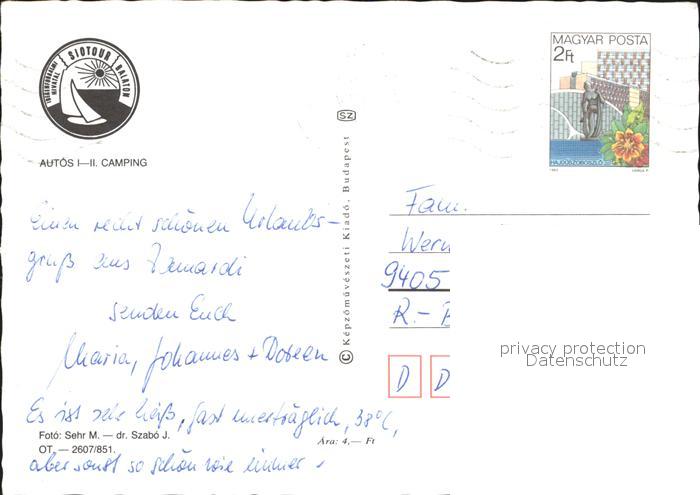 IDEGENFORGALMI HIVATAL SIOTOUR BALATON
AUTÓS I—II. CAMPING
MAGYAR POSTA
2Ft
HAJDÚSZOBOSZLÓ
SZ
Képzőművészeti Kiadó, Budapest
Einen recht schönen Urlaubs-
gruß aus Zamardi
senden Euch
Maria, Johannes + Doreen
Es ist sehr heiß, fast unerträglich, 38°C,
aber sonst so schön wie immer.
Foto: Sehr M. — dr. Szabó J.
OT. — 2607/851.
Ára: 4,— Ft
Fam.
Wern
9405
R.-B
D D
privacy protection
Datenschutz